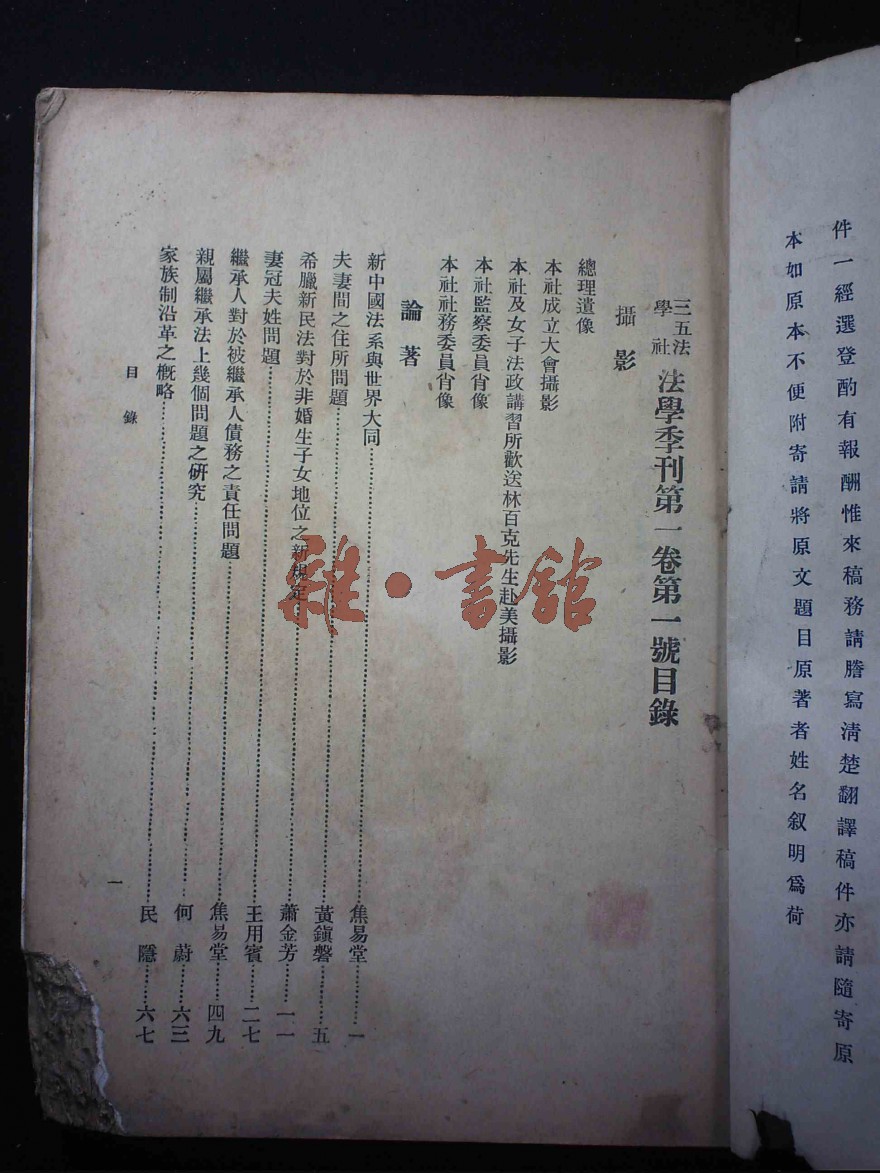 件一經選登酌有報酬惟來稿務請謄寫淸楚翻譯稿件亦請隨寄原
本如原本不便附寄請將原文題目原著者姓名叙明爲荷
三五法學社 法學季刊第一卷第一號目錄
攝影
總理遺像
本社成立大會攝影
本社及女子法政講習所歡送林百克先生赴美攝影
本社監察委員肖像
本社社務委員肖像
論著
新中國法系與世界大同……焦易堂……一
夫妻間之住所問題……黃鎭磐……五
希臘新民法對於非婚生子女地位之新規定……蕭金芳……一一
妻冠夫姓問題……王用賓……二七
繼承人對於被繼承人債務之責任問題……焦易堂……四九
親屬繼承法上幾個問題之硏究……何蔚……六三
家族制沿革之槪略……民隱……六七
目錄
一
雜·書館